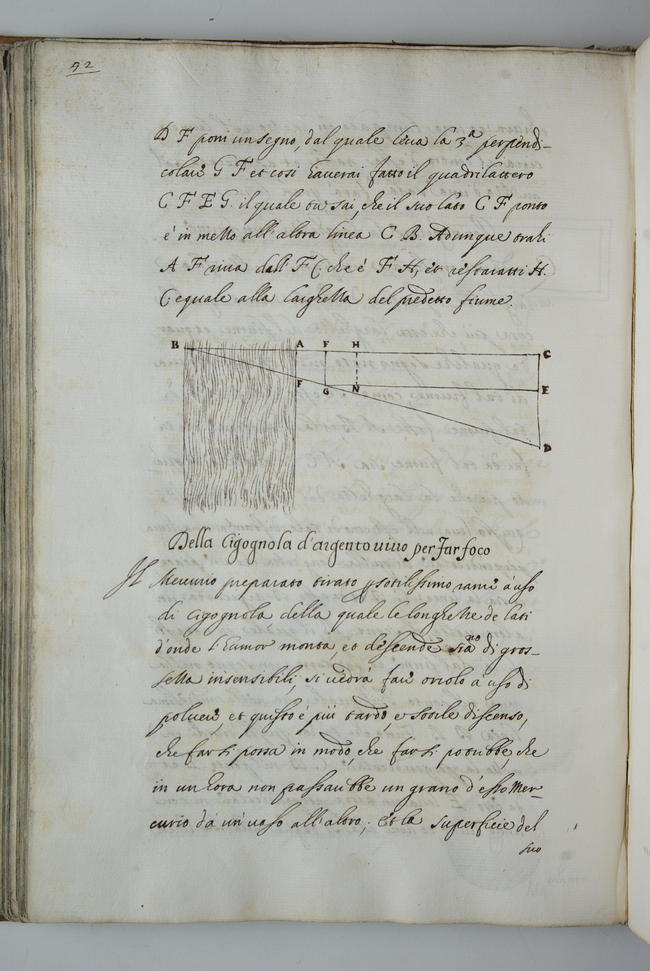 92
D F poni un segno, dal quale leva la 3.ª perpendi-
colare G F et così haverai fatto il quadrilattero
C F E G. il quale tu sai, che il suo lato C F ponto
è in mezzo all'altra linea C B. Adunque trahi
A F riva dall' F C, che è F H, et restaratti H.
C, equale alla larghezza del predetto fiume.
B A F H C
F G N E
D
Della Cigognola d'argento vivo per far foco
Il Mercurio preparato tirato p sotilissimo rame à uso
di Cigognola, della quale le longhezze de lati
d'onde l'humor monta, et descende siano di gros-
sezza insensibili, si vedrà fare oriolo a uso di
polvere, et questo è più tardo, e sotile discenso,
che far si possa in modo, che far si potrebbe, che
in un hora non passarebbe un grano d'esso Mer-
curio da un vaso all'altro; Et la superficie del
suo